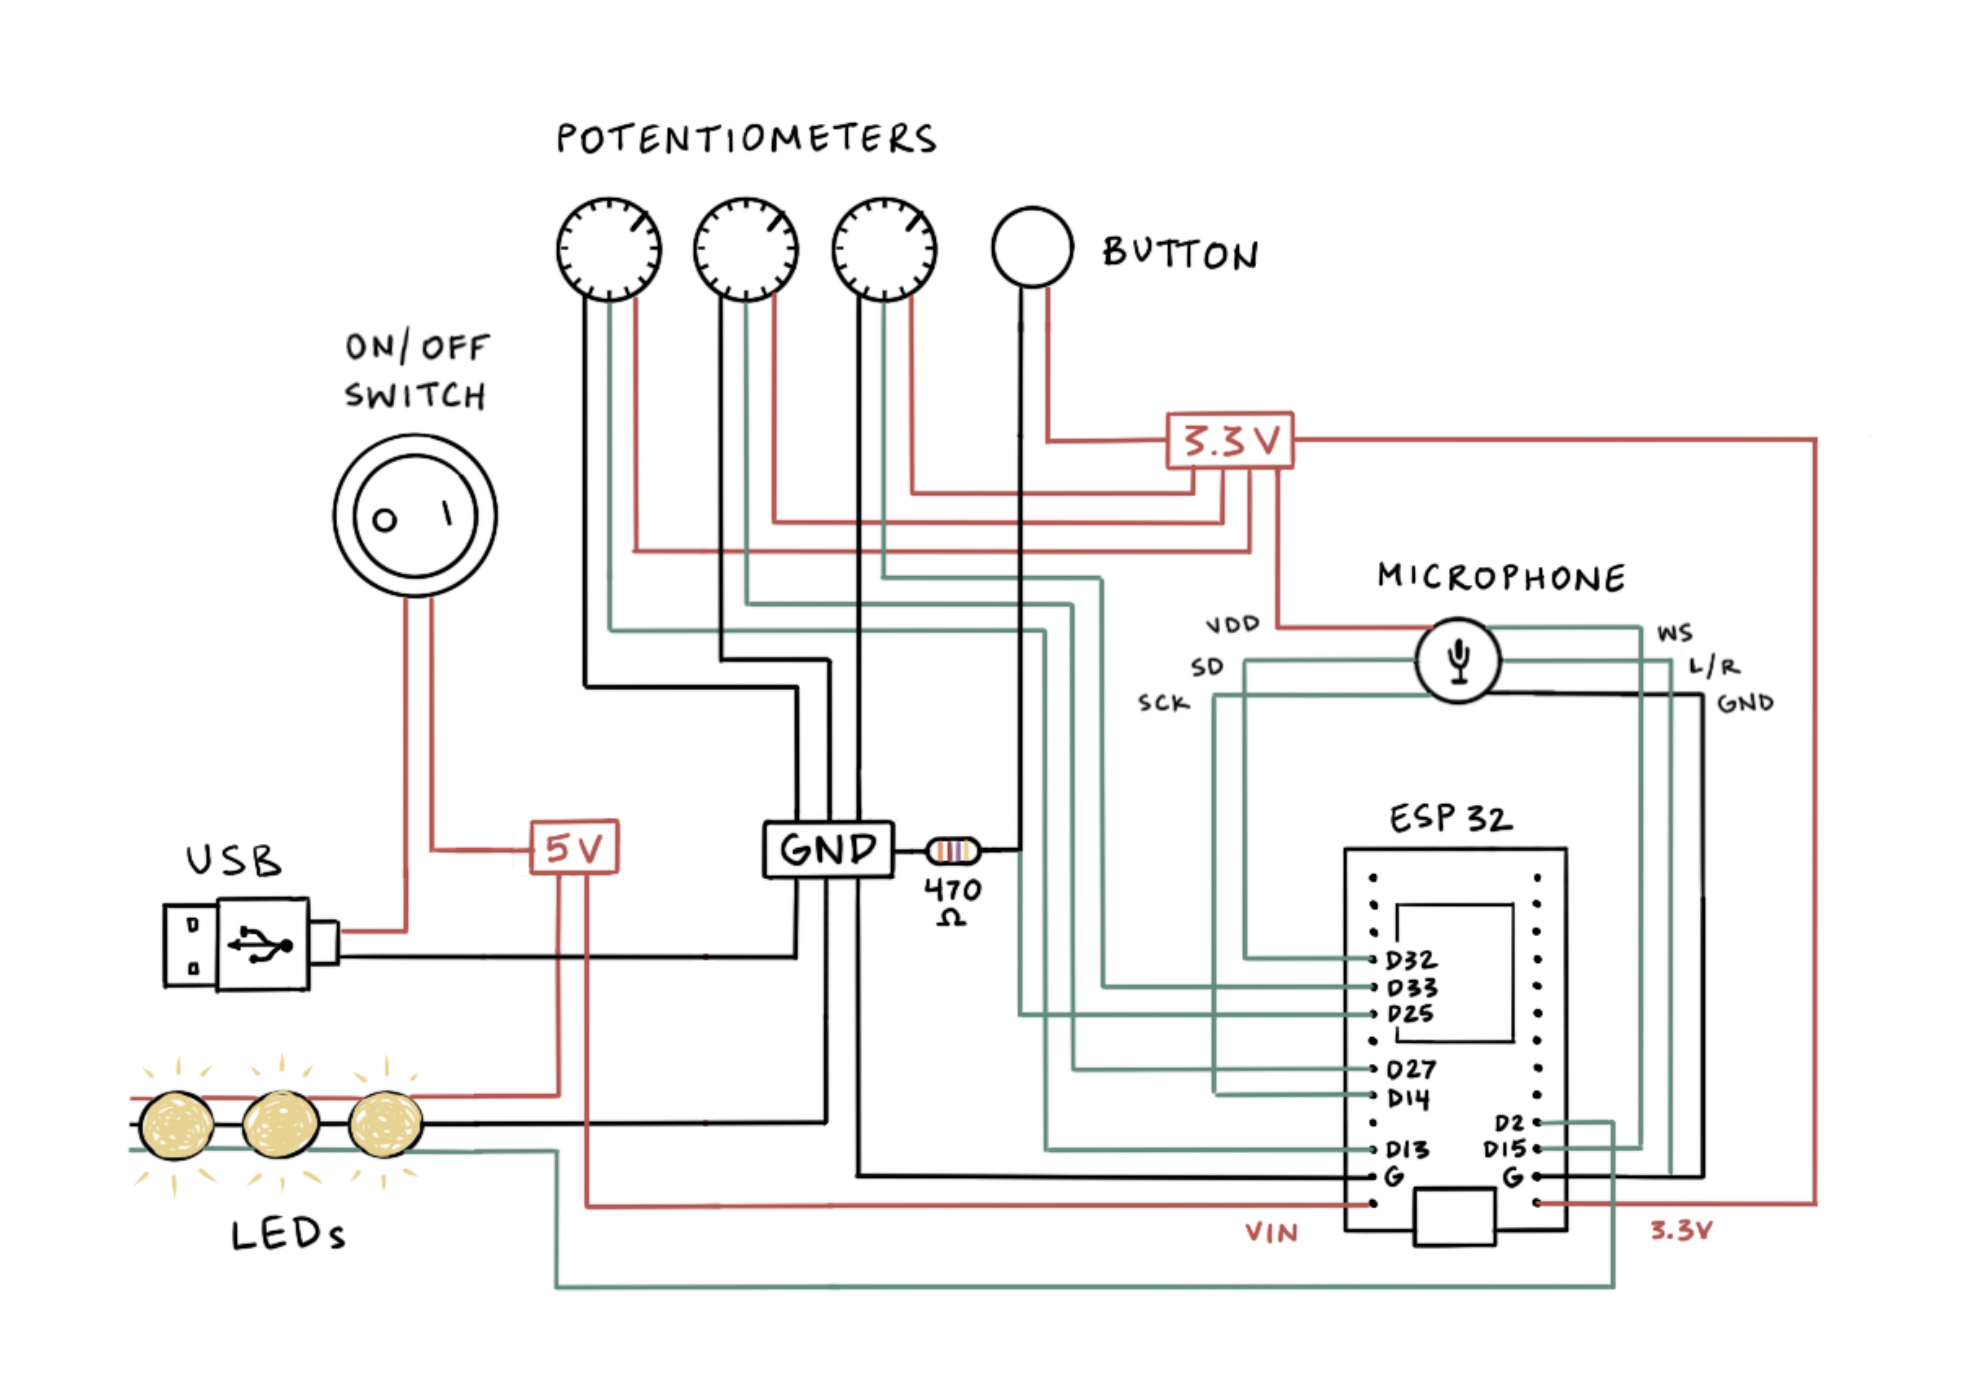 POTENTIOMETERS
BUTTON
ON/OFF
SWITCH
3.3V
MICROPHONE
VDD
WS
SD
L/R
SCK
GND
ESP 32
USB
5V
GND
470
Ω
D32
D33
D25
D27
D14
D2
D13
D15
G
G
LEDs
VIN
3.3V